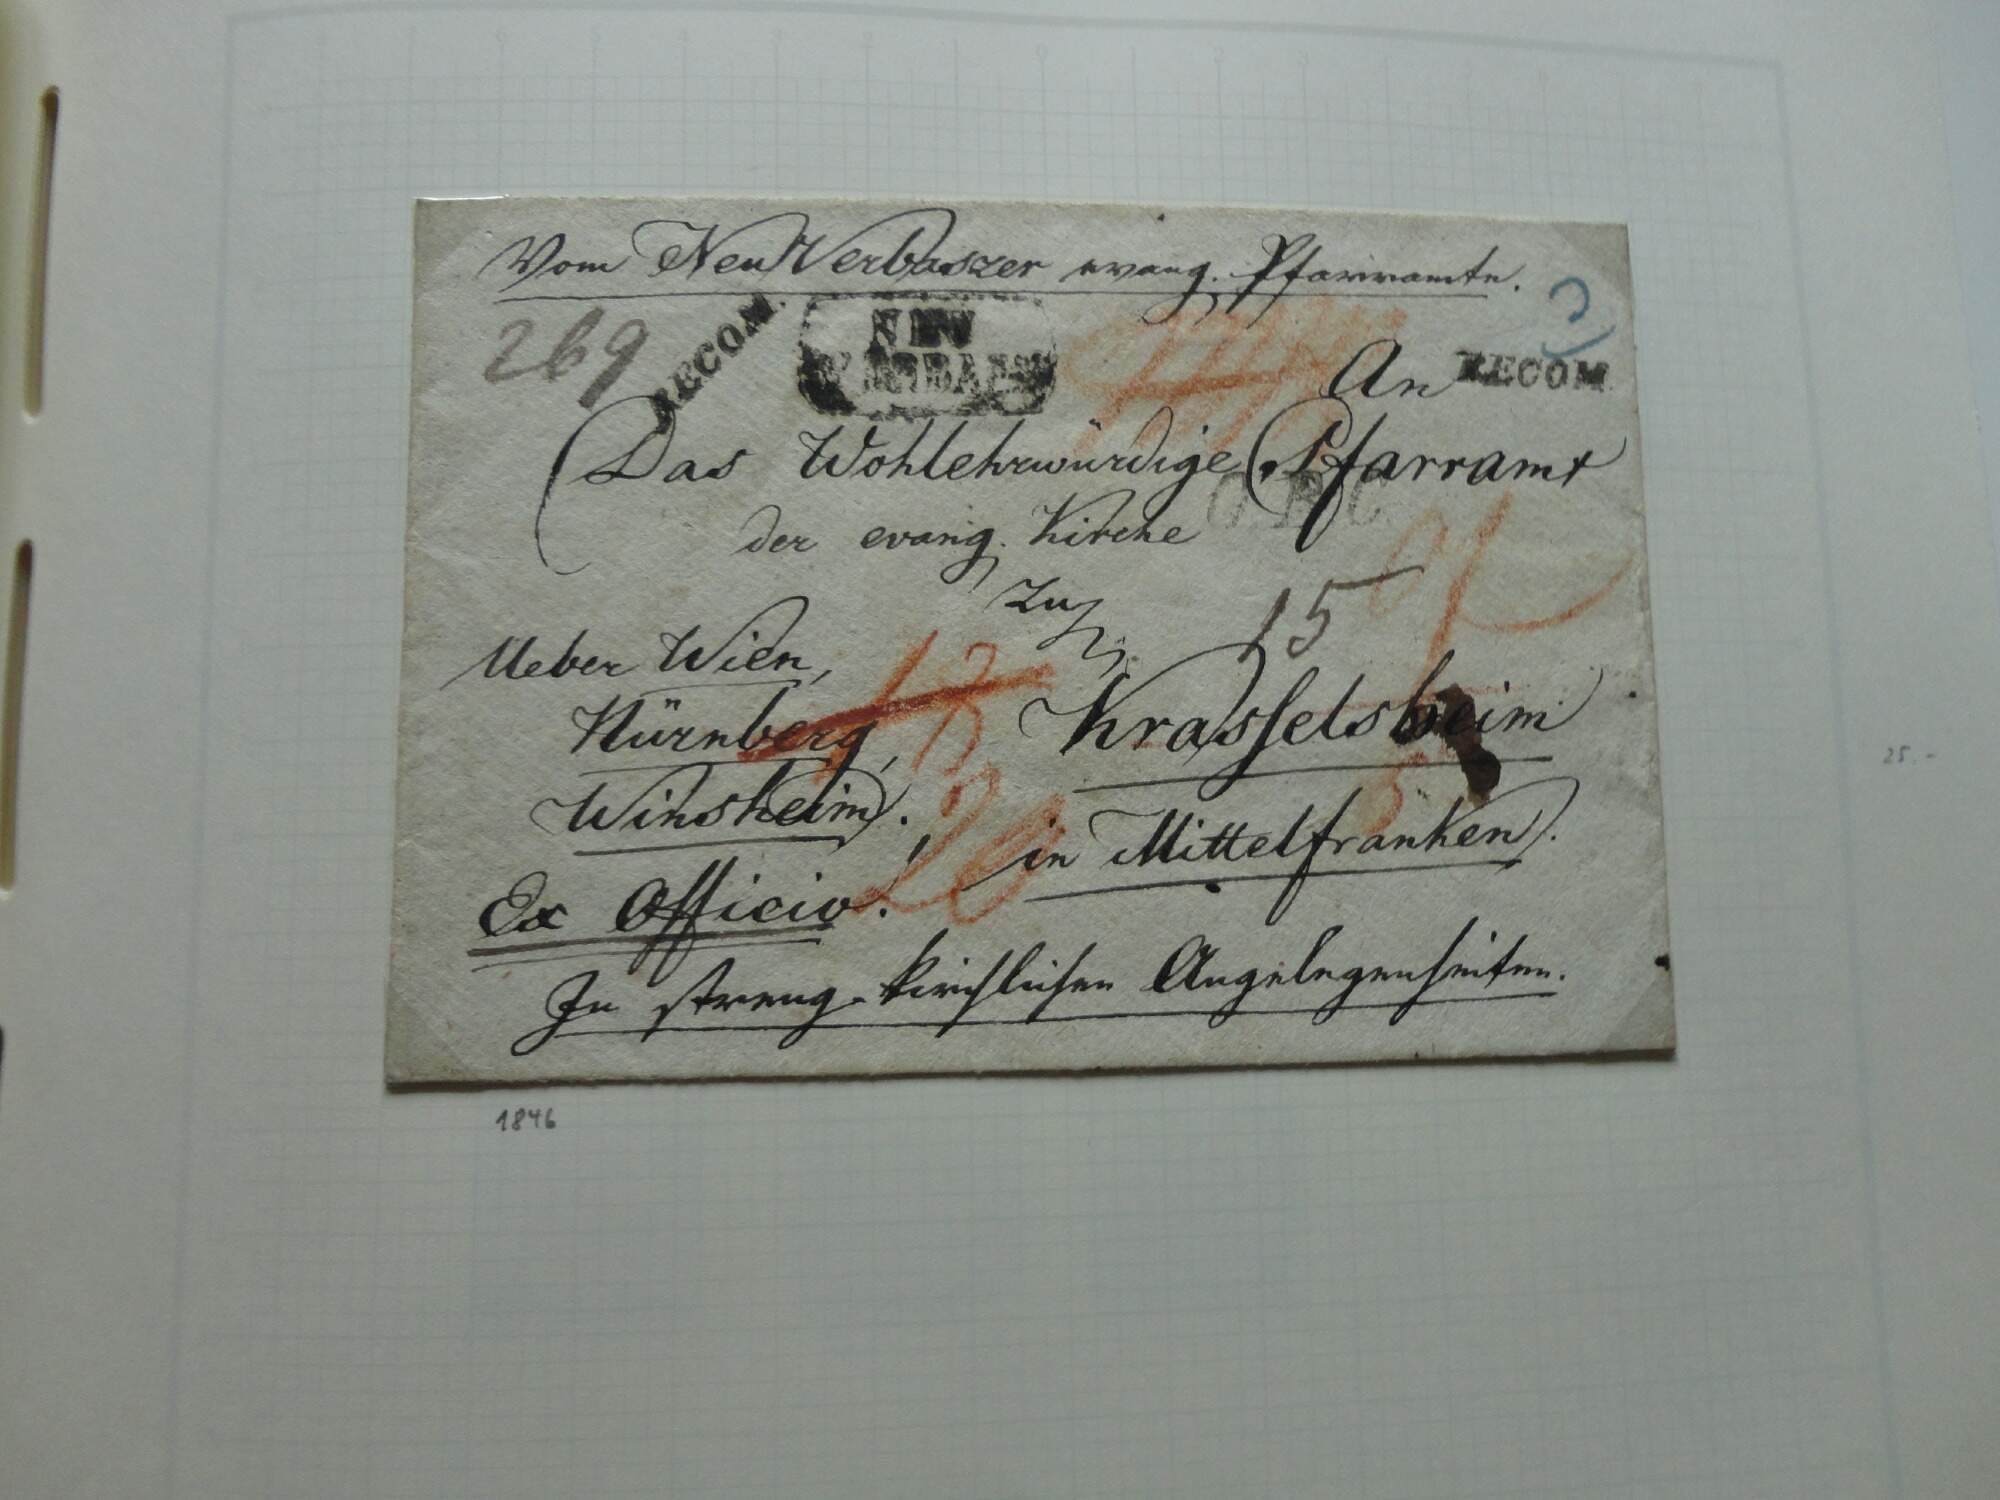 Vom Neu Verbaszer evang. Pfarramte.
269
RECOM.
NEU
An
RECOM.
Das Wohlehrwürdige Pfarramt
der evang. Kirche
zu
15
Ueber Wien,
Nürnberg,
Winsheim.
Krasselsheim
in Mittelfranken.
Ex Officio.
In streng-kirchlichen Angelegenheiten.
1846
25.-